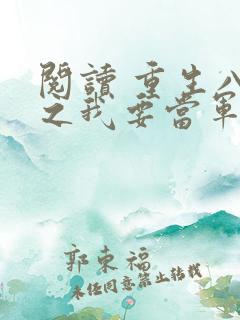 閱讀 重生八
之我要當軍
郭東福
未經同意禁止轉載